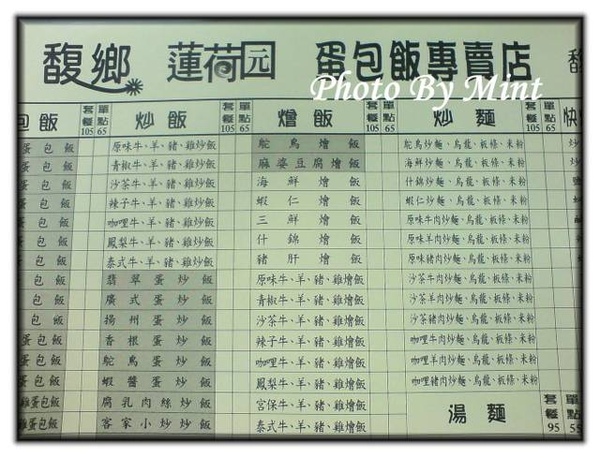 馥鄉 蓮荷园 元 蛋包飯專賣店
Photo By Mint
包飯 套餐105 單點65 炒飯 套餐105 單點65 燴飯 套餐105 單點65 炒麵
蛋包飯 原味牛、羊、豬、雞炒飯 鴕鳥燴飯 鴕鳥炒麵、烏龍、板條、米粉
蛋包飯 青椒牛、羊、豬、雞炒飯 麻婆豆腐燴飯 海鮮炒麵、烏龍、板條、米粉
包飯 沙茶牛、羊、豬、雞炒飯 海鮮燴飯 什錦炒麵、烏龍、板條、米粉
包飯 辣子牛、羊、豬、雞炒飯 蝦仁燴飯 蝦仁炒麵、烏龍、板條、米粉
包飯 咖哩牛、羊、豬、雞炒飯 三鮮燴飯 原味牛肉炒麵、烏龍、板條、米粉
包飯 鳳梨牛、羊、豬、雞炒飯 什錦燴飯 原味羊肉炒麵、烏龍、板條、米粉
包飯 泰式牛、羊、豬、雞炒飯 豬肝燴飯 原味豬肉炒麵、烏龍、板條、米粉
包飯 翡翠蛋炒飯 原味牛、羊、豬、雞燴飯 沙茶牛肉炒麵、烏龍、板條、米粉
包飯 廣式蛋炒飯 青椒牛、羊、豬、雞燴飯 沙茶羊肉炒麵、烏龍、板條、米粉
包飯 揚州蛋炒飯 沙茶牛、羊、豬、雞燴飯 沙茶豬肉炒麵、烏龍、板條、米粉
蛋包飯 香根蛋炒飯 辣子牛、羊、豬、雞燴飯 咖哩牛肉炒麵、烏龍、板條、米粉
蛋包飯 鴕鳥蛋炒飯 咖哩牛、羊、豬、雞燴飯 咖哩羊肉炒麵、烏龍、板條、米粉
蛋包飯 蝦醬蛋炒飯 鳳梨牛、羊、豬、雞燴飯 咖哩豬肉炒麵、烏龍、板條、米粉
雞蛋包飯 腐乳肉絲炒飯 宮保牛、羊、豬、雞燴飯 湯麵 套餐95 單點55
雞蛋包飯 客家小炒炒飯 泰式牛、羊、豬、雞燴飯